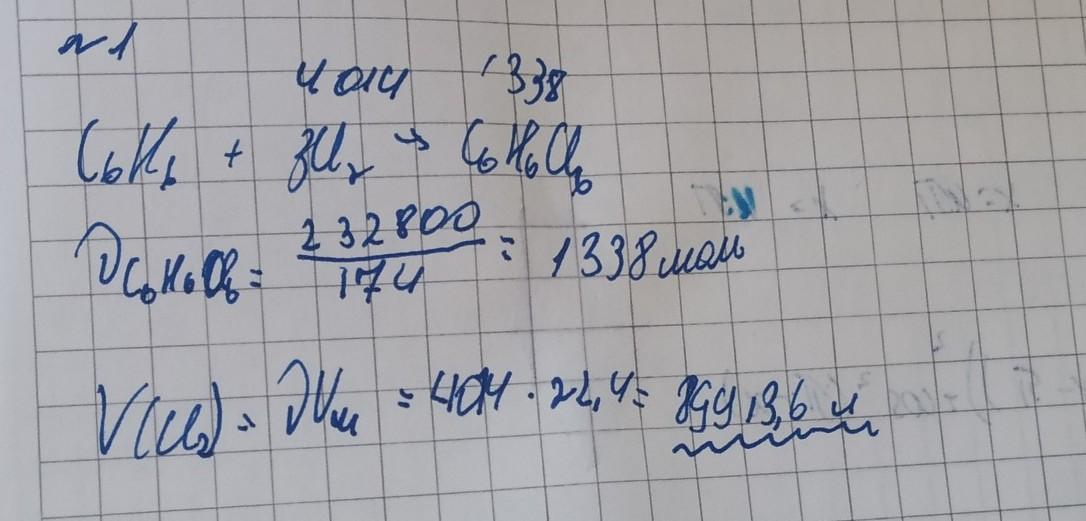 №1
4014 1338
C₆H₆ + 3Cl₂ → C₆H₆Cl₆
νC₆H₆Cl₆ = 232800/174 = 1338 моль
V(Cl₂) = νVм = 4014 · 22,4 = 89913,6 л